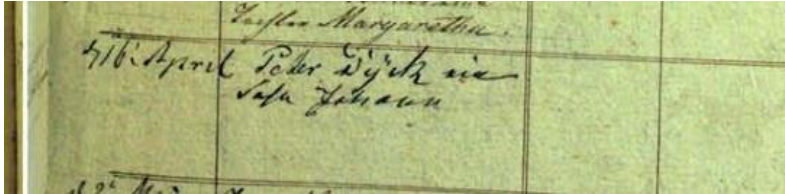 Tochter Margaretha.
d 16t April Peter Dÿck ein
Sohn Johann